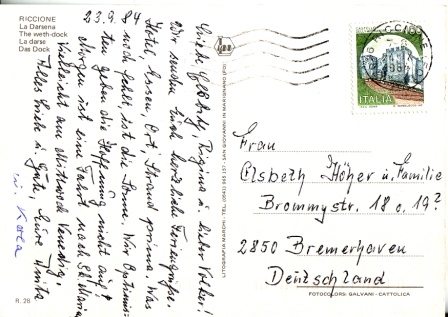 RICCIONE
La Darsena
The weth-dock
La darse
Das Dock
23.9.84
Liebe Elsbeth, Regina u. lieber Volker!
Wir senden Euch herzliche Feriengrüße.
Hotel, Essen, Ort, Strand prima. Was
noch fehlt, ist die Sonne. Wir Optimis-
ten geben die Hoffnung nicht auf!
Morgen ist eine Fahrt nach S. Marino
Vielleicht am Mittwoch Venedig.
Alles Liebe u. Gute, Eure Anita
u. Karla
R. 28
LITOGRAFIA MARCHI - TEL. (0541)
SAN GIOVANNI IN MARIGNANO (FO)
RICCIONE
ITALIA
Frau
Elsbeth Höher u. Familie
Brommystr. 18 o. 19?
2850 Bremerhaven
Deutschland
FOTOCOLORS: GALVANI - CATTOLICA